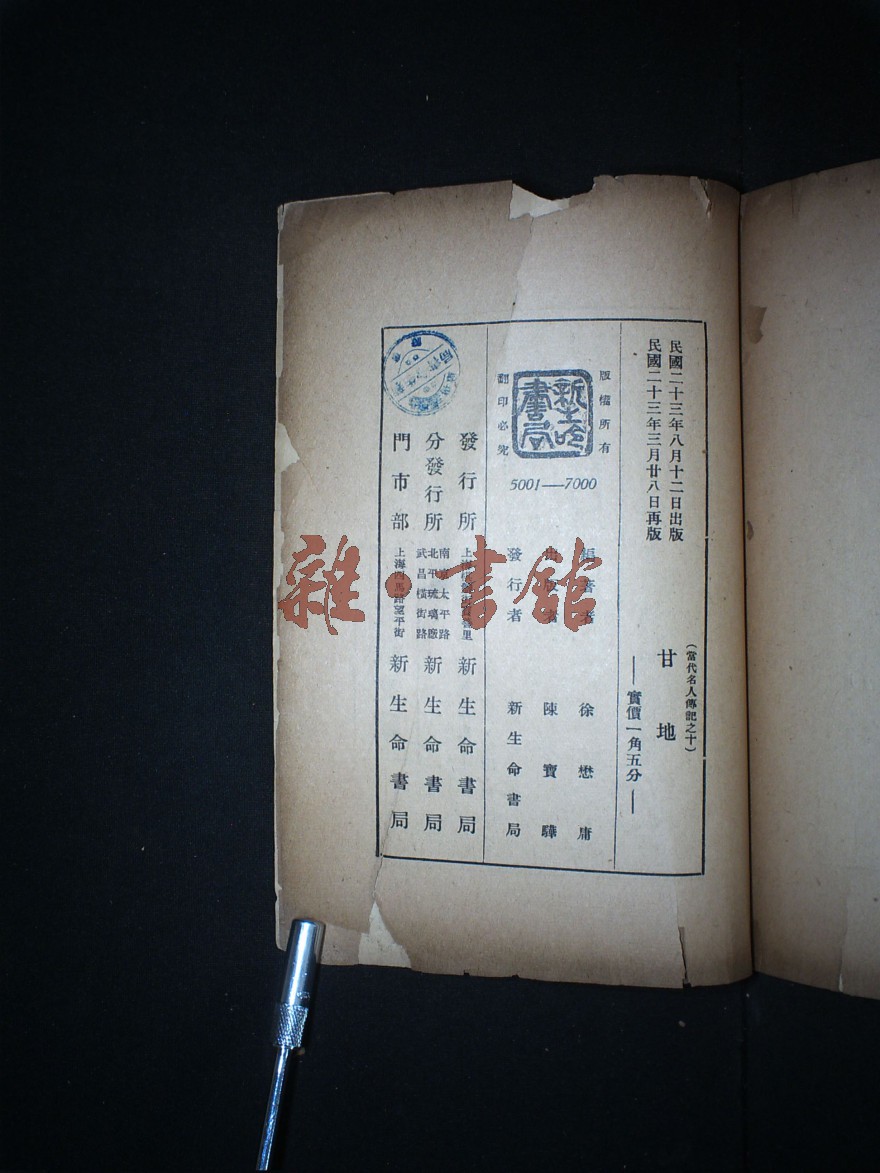 民國二十三年八月十二日出版
民國二十三年三月廿八日再版
(當代名人傳記之十)
甘地
——實價一角五分——
版權所有
新生命書局
翻印必究
5001—7000
編著者 徐懋庸
出版者 陳寶驊
發行者 新生命書局
發行所 上海 里 新生命書局
分發行所 南京太平路 北平琉璃廠 武昌橫街路 新生命書局
門市部 上海四馬路望平街 新生命書局
雜·書館